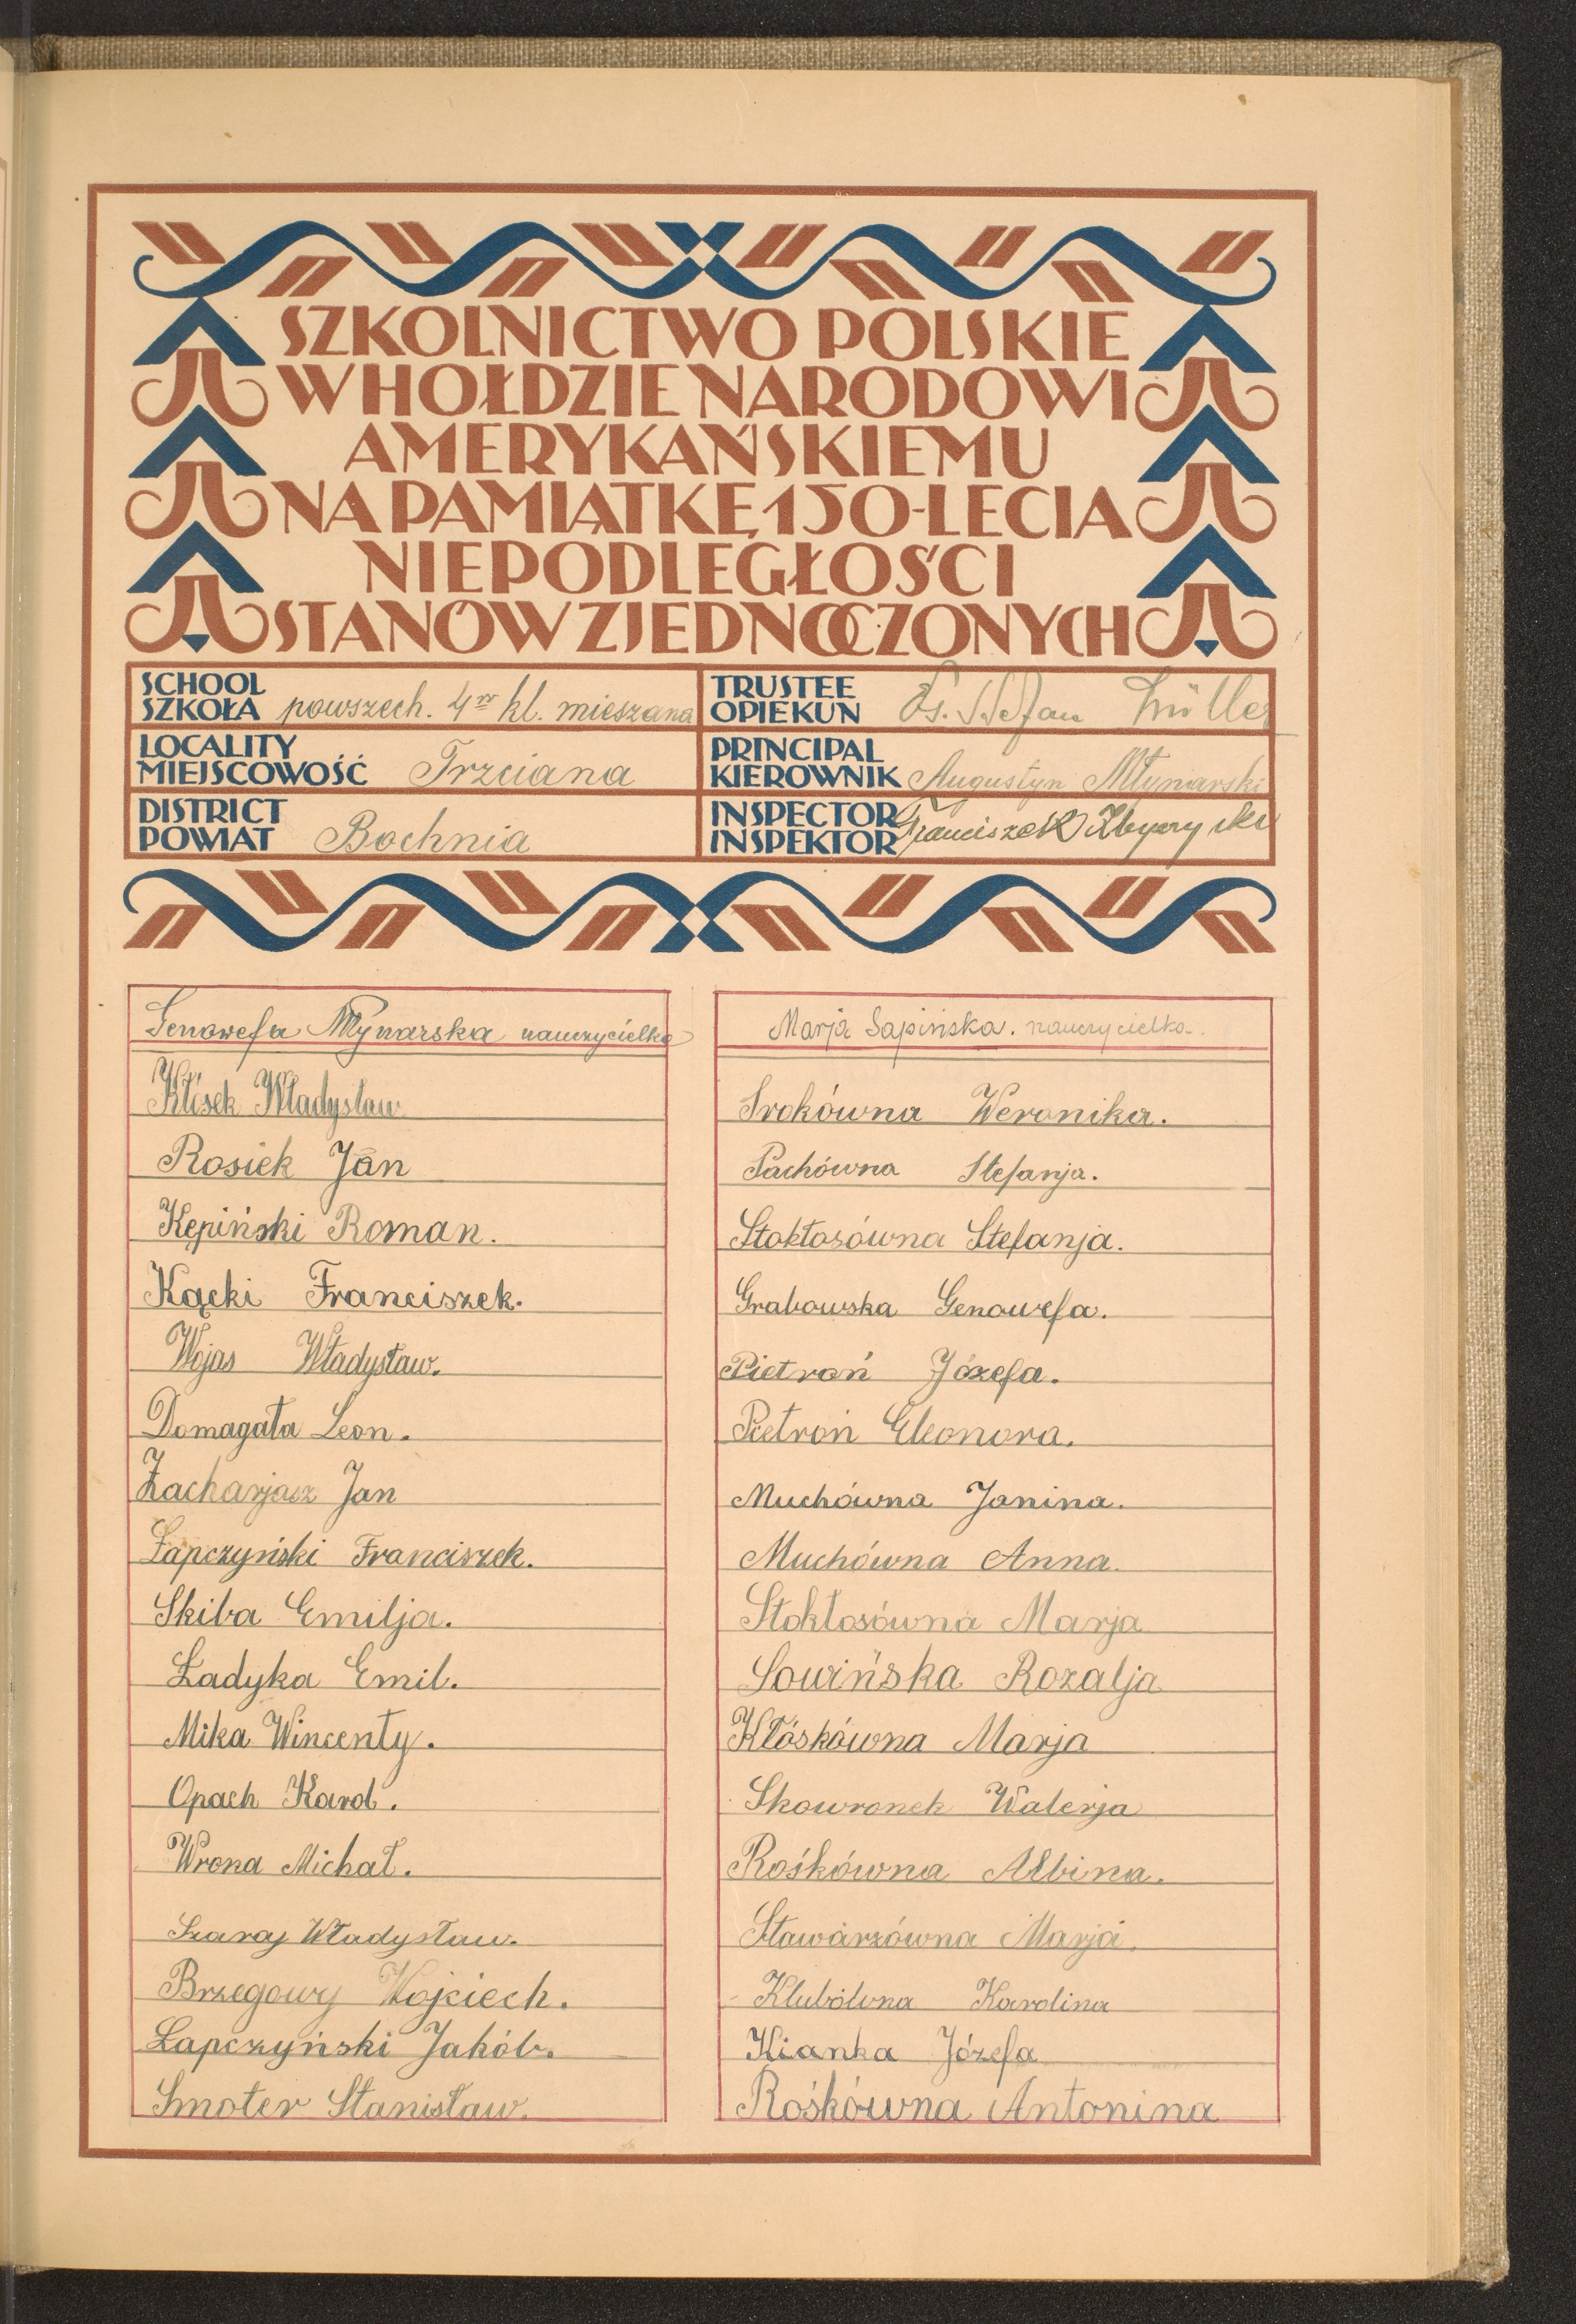 SZKOLNICTWO POLSKIE
W HOŁDZIE NARODOWI
AMERYKAŃSKIEMU
NA PAMIĄTKĘ 150-LECIA
NIEPODLEGŁOŚCI
STANÓW ZJEDNOCZONYCH
SCHOOL
SZKOŁA powszech. 4 kl. mieszana
TRUSTEE
OPIEKUN Ks. Stefan Müller
LOCALITY
MIEJSCOWOŚĆ Trzciana
PRINCIPAL
KIEROWNIK Augustyn Młynarski
DISTRICT
POWIAT Bochnia
INSPECTOR
INSPEKTOR Franciszek
Genowefa Młynarska nauczycielka
Kłósek Władysław
Rosiek Jan
Kępiński Roman.
Kącki Franciszek.
Wojas Władysław.
Domagała Leon.
Zacharjasz Jan
Łapczyński Franciszek.
Skiba Emilja.
Ładyka Emil.
Mika Wincenty.
Opach Karol.
Wrona Michał.
Szaraj Władysław.
Brzegowy Wojciech.
Łapczyński Jakób.
Smoter Stanisław.
Marja Sapińska. nauczycielka.
Srokówna Weronika.
Pachówna Stefanja.
Stokłosówna Stefanja.
Grabowska Genowefa.
Pietroń Józefa.
Pietroń Eleonora.
Muchówna Janina.
Muchówna Anna.
Stokłosówna Marja
Sowińska Rozalja
Kłóskówna Marja
Skowronek Walerja
Rośkówna Albina.
Stawarzówna Marja.
Klubówna Karolina
Kianka Józefa
Rośkówna Antonina